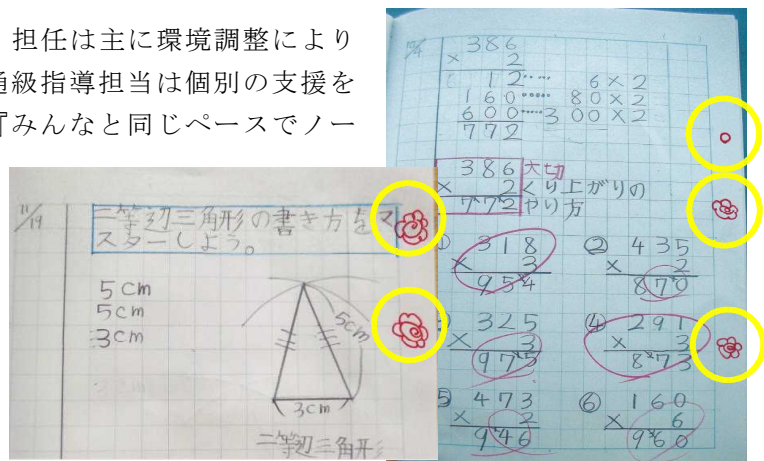 担任は主に環境調整により
通級指導担当は個別の支援を
『みんなと同じペースでノー
11/19
二等辺三角形の書き方をマ
スターしよう。
5cm
5cm
3cm
5cm
3cm
二等辺三角形
386
× 2
12‥‥ 6×2
160‥‥‥ 80×2
600‥‥300×2
772
386 大切
× 2 くり上がりの
772 やり方
① 318 ② 435
× 3 × 2
954 870
325 ④ 291
× 3 × 3
975 873
⑤ 473 ⑥ 160
× 2 × 6
946 960